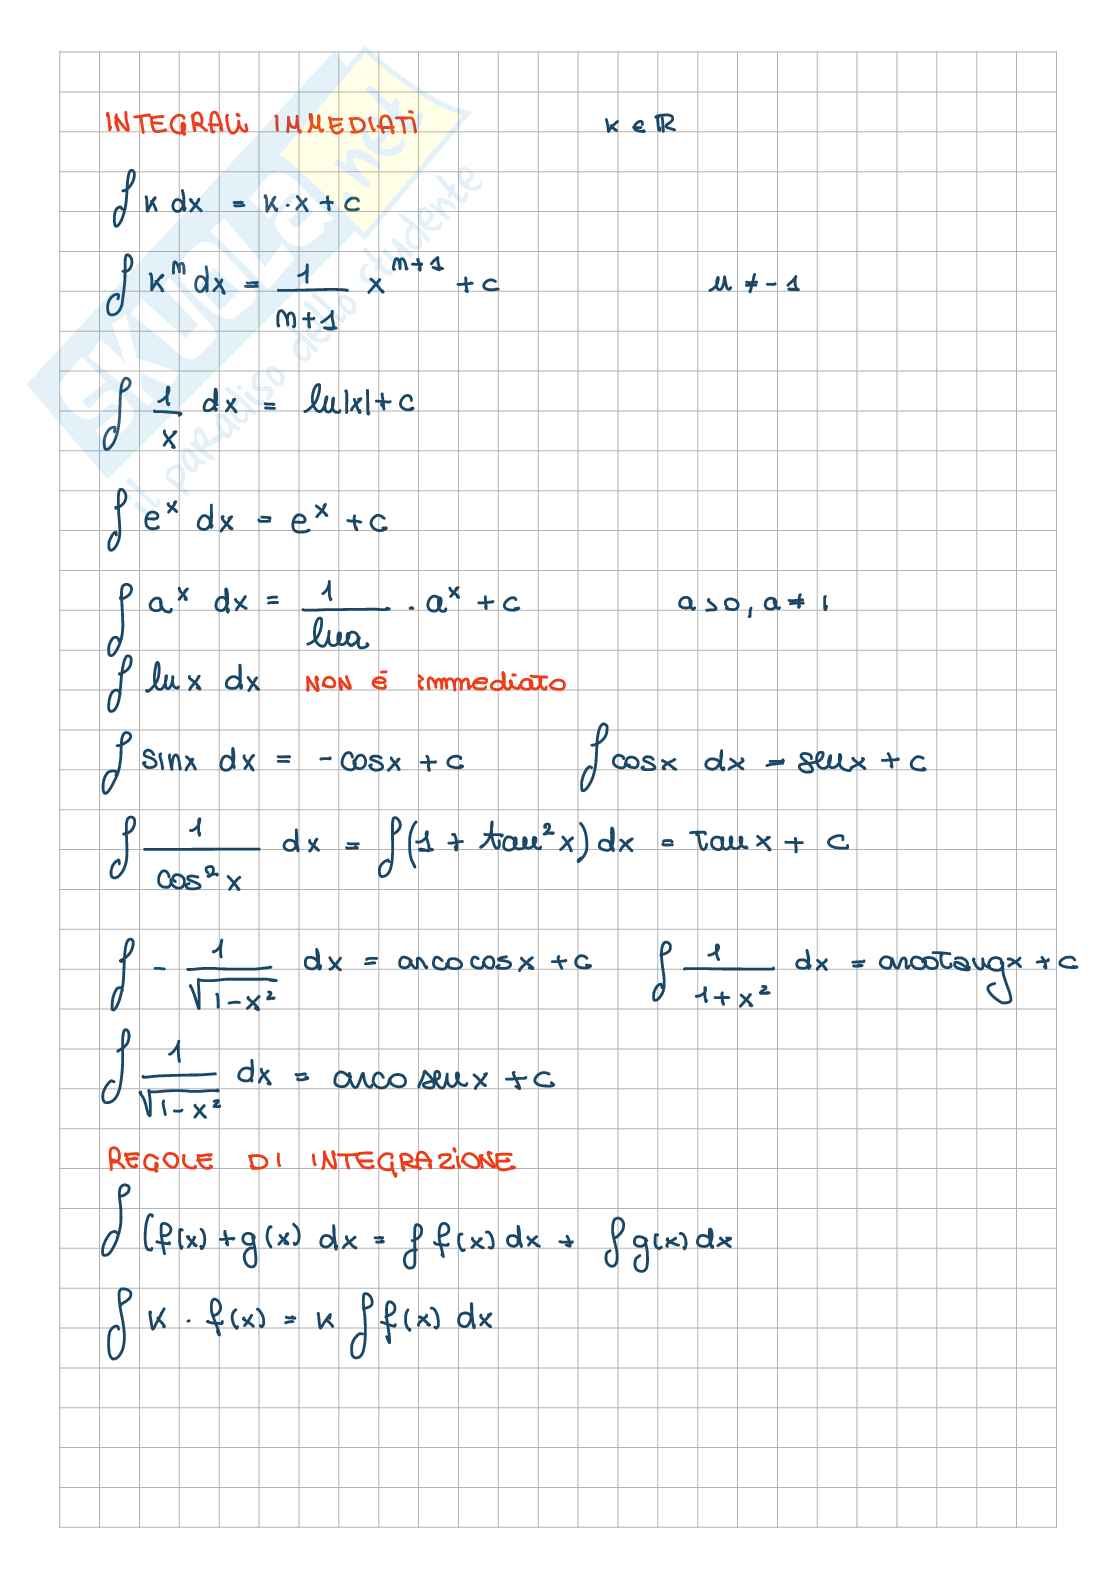 INTEGRALI IMMEDIATI k ∈ ℝ
∫ k dx = k·x + c
∫ k^n dx = 1/(n+1) x^(n+1) + c n ≠ -1
∫ 1/x dx = ln|x| + c
∫ e^x dx = e^x + c
∫ a^x dx = 1/lna · a^x + c a>0, a≠1
∫ ln x dx NON È immediato
∫ sinx dx = -cosx + c ∫ cosx dx = senx + c
∫ 1/cos²x dx = ∫(1 + tan²x) dx = tan x + c
∫ - 1/√(1-x²) dx = arcocosx + c ∫ 1/(1+x²) dx = arcotangx + c
∫ 1/√(1-x²) dx = arcosenx + c
REGOLE DI INTEGRAZIONE
∫ (f(x) + g(x) dx = ∫ f(x) dx + ∫ g(x) dx
∫ k · f(x) = k ∫ f(x) dx
SKUOLA.net
il paradiso dello studente